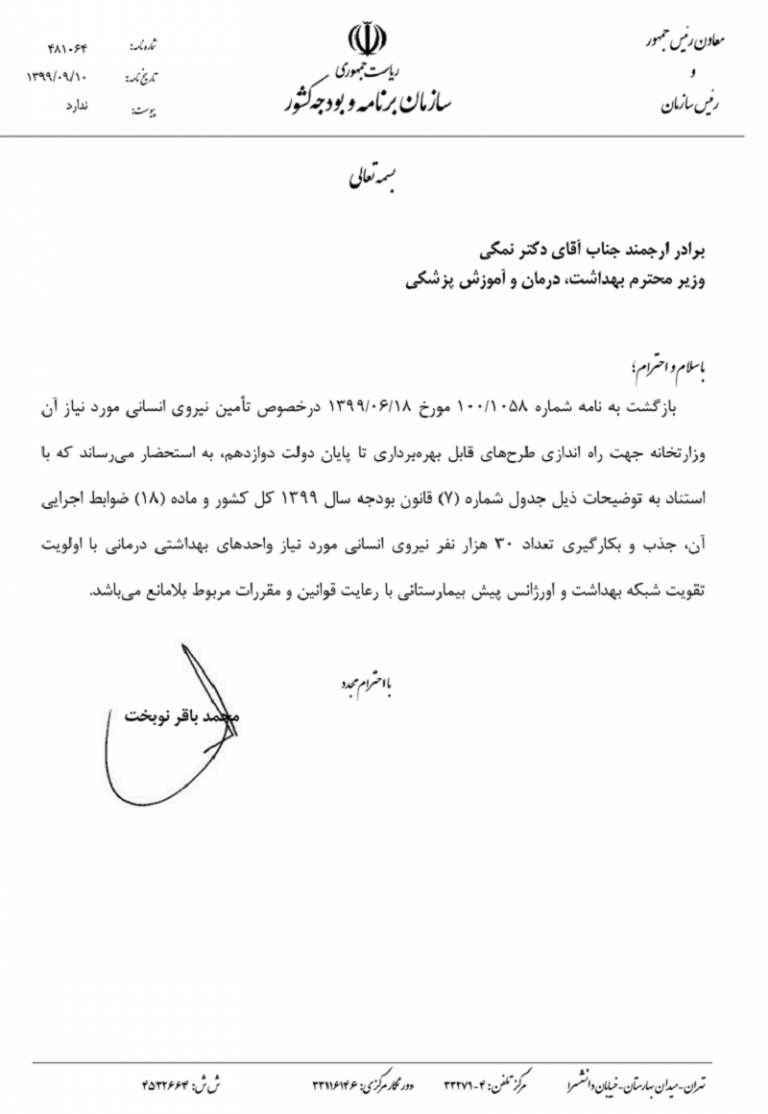 معاون رئیس جمهور
و
رئیس سازمان
ریاست جمهوری
سازمان برنامه و بودجه کشور
شماره نامه: ۴۸۱۰۶۴
تاریخ نامه: ۱۳۹۹/۰۹/۱۰
پیوست: ندارد
بسمه تعالی
برادر ارجمند جناب آقای دکتر نمکی
وزیر محترم بهداشت، درمان و آموزش پزشکی
با سلام و احترام؛
بازگشت به نامه شماره ۱۰۰/۱۰۵۸ مورخ ۱۳۹۹/۰۶/۱۸ درخصوص تأمین نیروی انسانی مورد نیاز آن
وزارتخانه جهت راه اندازی طرح‌های قابل بهره‌برداری تا پایان دولت دوازدهم، به استحضار می‌رساند که با
استناد به توضیحات ذیل جدول شماره (۷) قانون بودجه سال ۱۳۹۹ کل کشور و ماده (۱۸) ضوابط اجرایی
آن، جذب و بکارگیری تعداد ۳۰ هزار نفر نیروی انسانی مورد نیاز واحدهای بهداشتی درمانی با اولویت
تقویت شبکه بهداشت و اورژانس پیش بیمارستانی با رعایت قوانین و مقررات مربوط بلامانع می‌باشد.
با احترام مجدد
محمد باقر نوبخت
تهران-میدان بهارستان-خیابان دانشسرا مرکز تلفن: ۴-۳۳۲۷۱ دورنگار مرکزی: ۳۳۱۱۶۱۴۶ ش ش: ۴۵۳۲۶۶۴